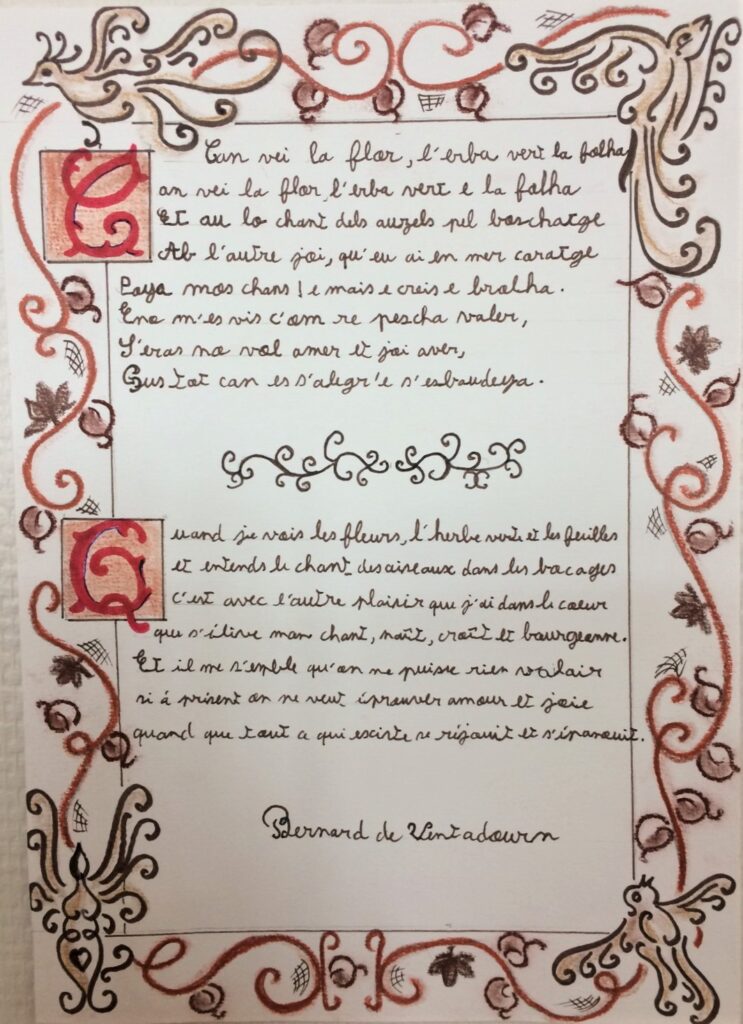 Can vei la flor, l'erba vert la folha
C an vei la flor, l'erba vert e la folha
Et au lo chant dels auzels pel boschatge
Ab l'autre joi, qu'eu ai en mer coratge
mos chans ! e mais e creis e brolha.
Ene m'es vis c'om re poscha valer,
S'eras no vol amer et joi aver,
Gus tot can es s'alegr'e s'esbaudeya.
Quand je vois les fleurs, l'herbe verte et les feuilles
et entends le chant des oiseaux dans les bocages
c'est avec l'autre plaisir que j'ai dans le coeur
que s'élève mon chant, naît, croît et bourgeonne.
Et il me s'emble qu'on ne puisse rien valoir
si à présent on ne veut éprouver amour et joie
quand que tout a qui esciste se réjouit et s'épanouit.
Bernard de Ventadourn